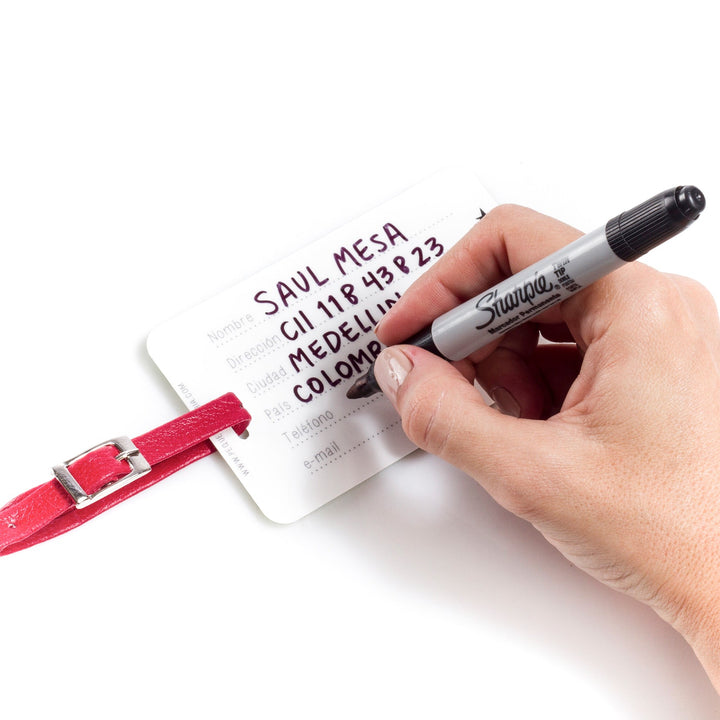 Nombre SAUL MESA
Dirección Cll 11 B 43 B 23
Ciudad MEDELLIN
País COLOMB
Teléfono
e-mail
Sharpie
TWIN TIP
Marcador Permanente